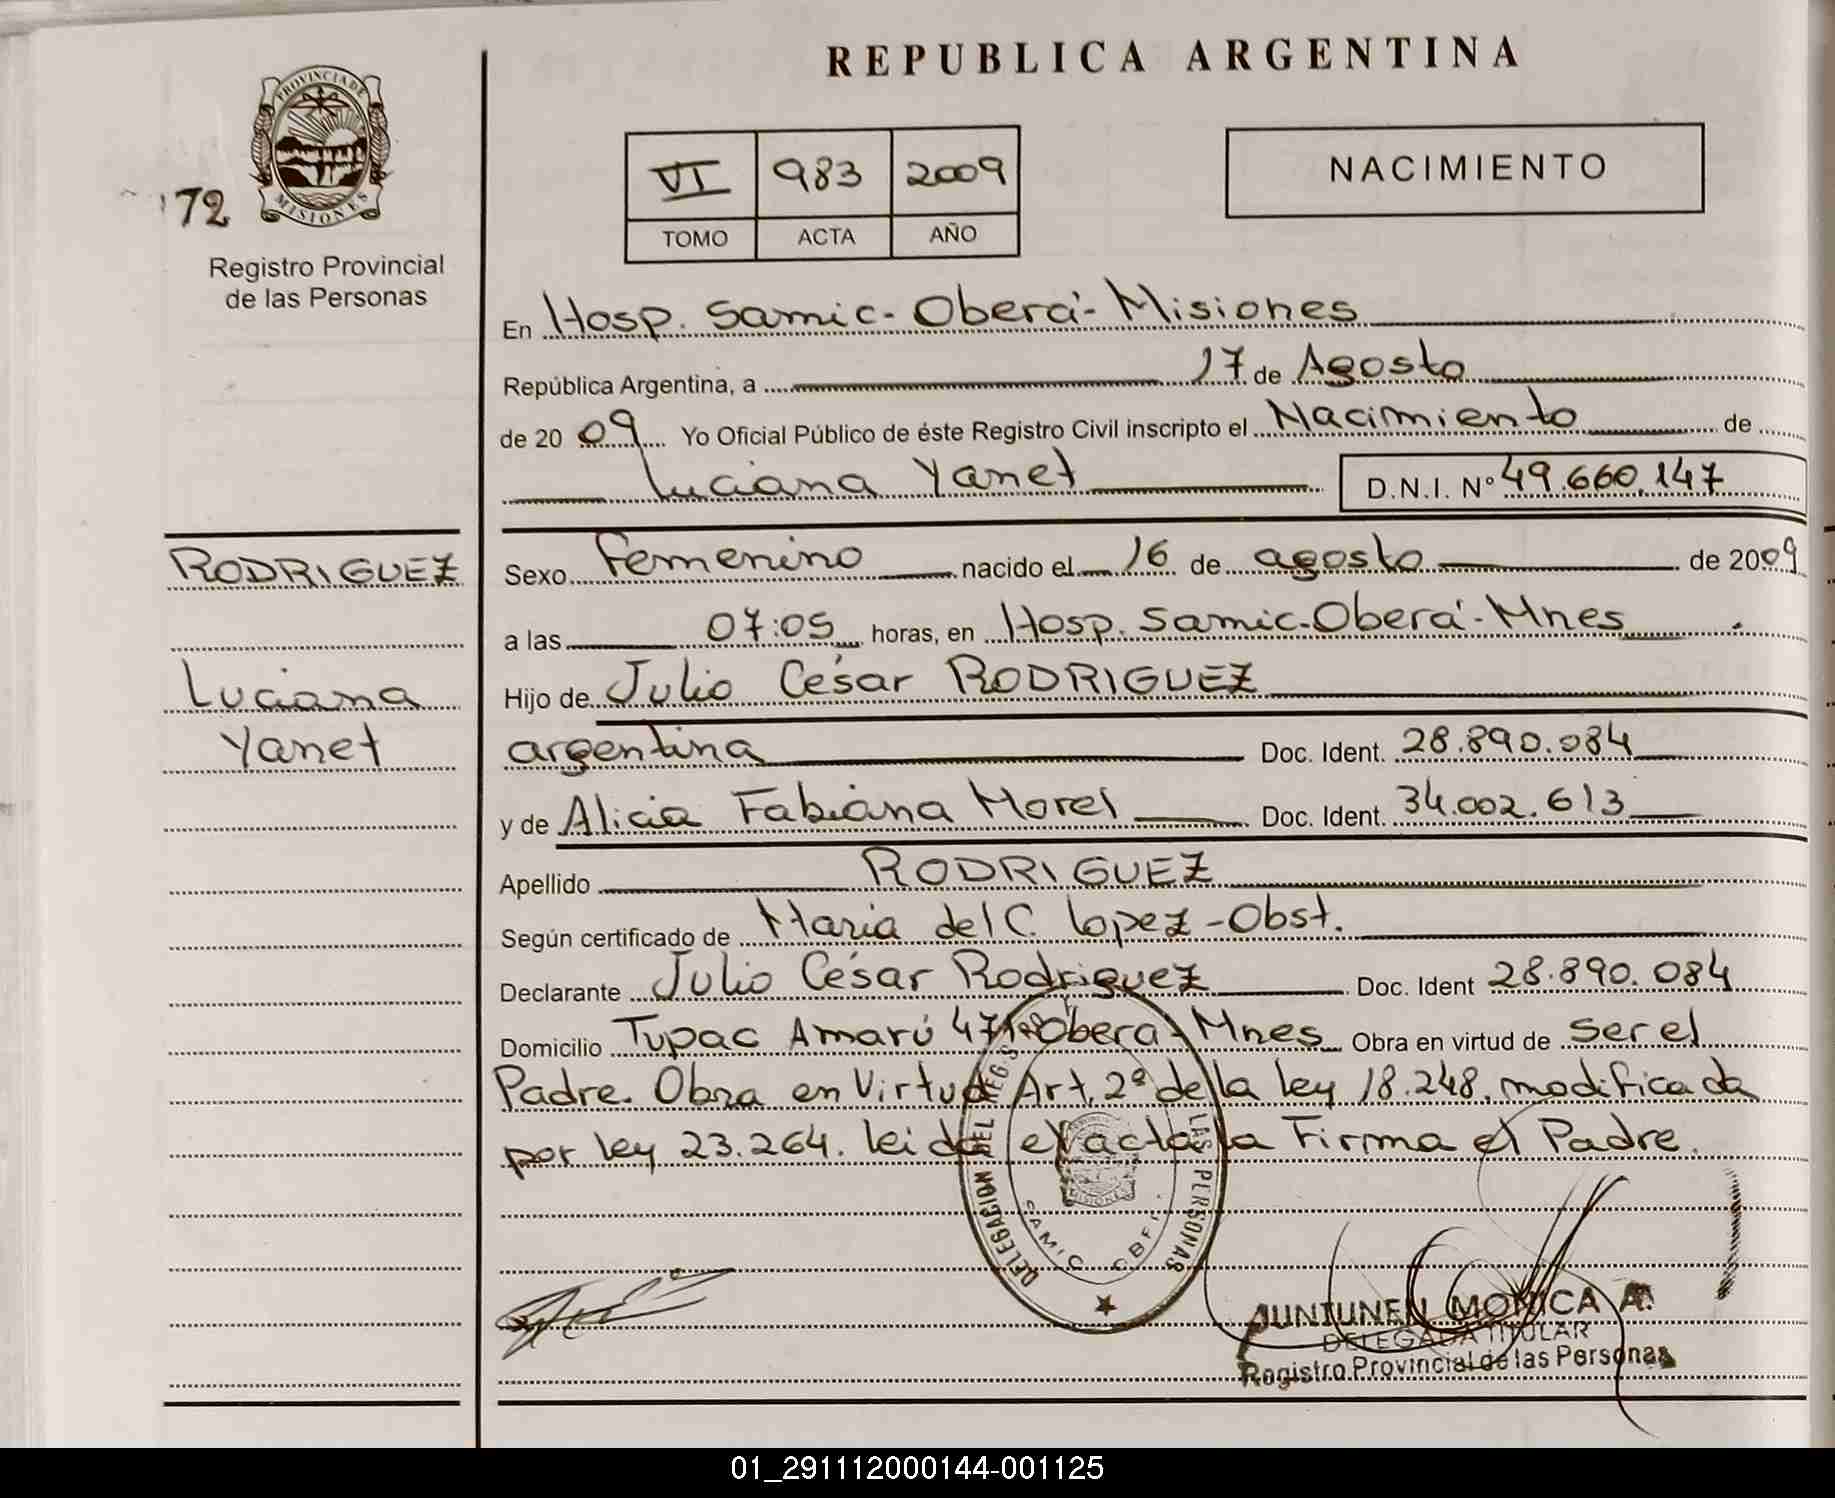 REPUBLICA ARGENTINA
PROVINCIA DE
MISIONES
172
Registro Provincial
de las Personas
VI 983 2009
TOMO ACTA AÑO
NACIMIENTO
En Hosp. Samic - Oberá - Misiones
República Argentina, a 17 de Agosto
de 2009 Yo Oficial Público de éste Registro Civil inscripto el Nacimiento de
Luciana Yanet D.N.I. Nº 49.660.147
RODRIGUEZ
Luciana
Yanet
Sexo Femenino nacido el 16 de agosto de 2009
a las 07:05 horas, en Hosp. Samic - Oberá - Mnes.
Hijo de Julio César RODRIGUEZ
argentina Doc. Ident. 28.890.084
y de Alicia Fabiana Morel Doc. Ident. 34.002.613
Apellido RODRIGUEZ
Según certificado de Maria del C. Lopez - Obst.
Declarante Julio César Rodriguez Doc. Ident 28.890.084
Domicilio Tupac Amarú 471 - Oberá - Mnes Obra en virtud de ser el
Padre. Obra en Virtud Art. 2º de la ley 18.248, modificada
por ley 23.264. leida el acta la Firma el Padre.
DELEGACION DEL REG. LAS PERSONAS
SAMIC
JUNTUNEN MONICA A.
DELEGADA TITULAR
Registro Provincial de las Personas
01_291112000144-001125